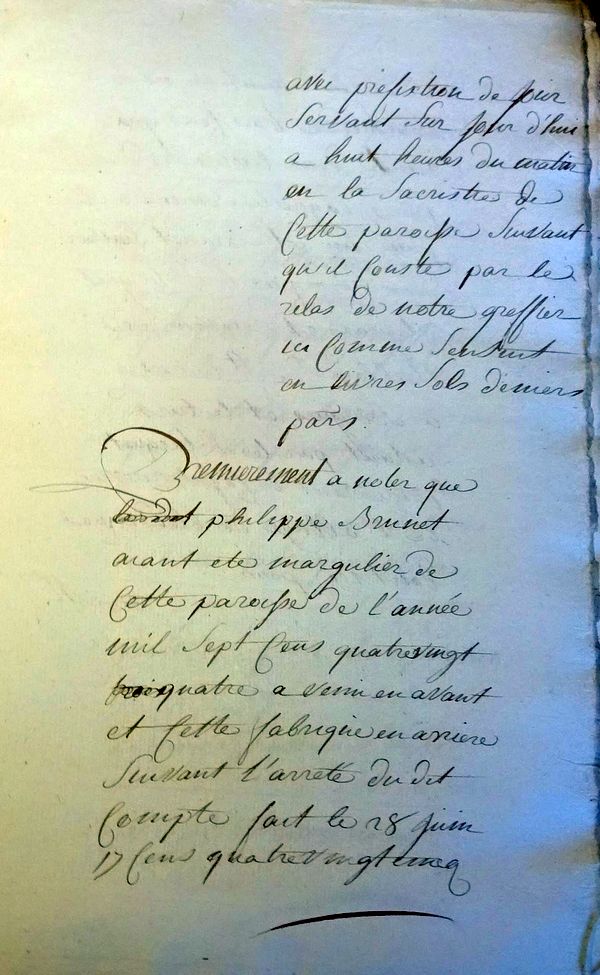 avec prefixtion de jour
Servant Sur jour d'hui
a huit heures du matin
en la Sacristie de
Cette paroisse Suivant
qu'il Conste par le
relas de notre greffier
ici Comme Sensuit
en livres Sols deniers
paris.
Premierement a noter que
philippe Brunet
aiant ete margulier de
Cette paroisse de l'année
mil Sept Cens quatrevingt
quatre a venu en avant
et Cette fabrique en arriere
Suivant l'arreté du dit
Compte fait le 28 juin
17 Cens quatrevingtcincq